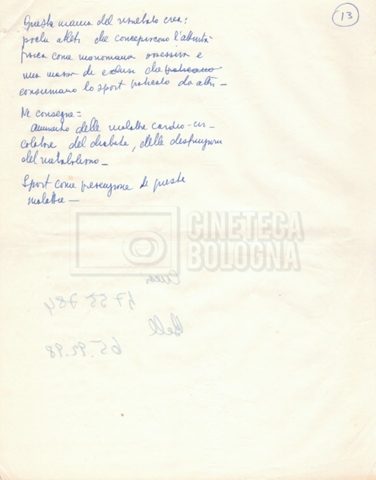 13
Questa mania del risultato crea:
pochi atleti che concepiscono l'attività
fisica come monomania ossessiva e
una massa di esclusi che praticano
consumano lo sport praticato da altri —
Ne consegue =
aumento delle malattie cardio-cir-
colatorie del diabete, delle disfunzioni
del metabolismo —
Sport come prevenzione di queste
malattie —
CINETECA
BOLOGNA
4755784
65.92.98